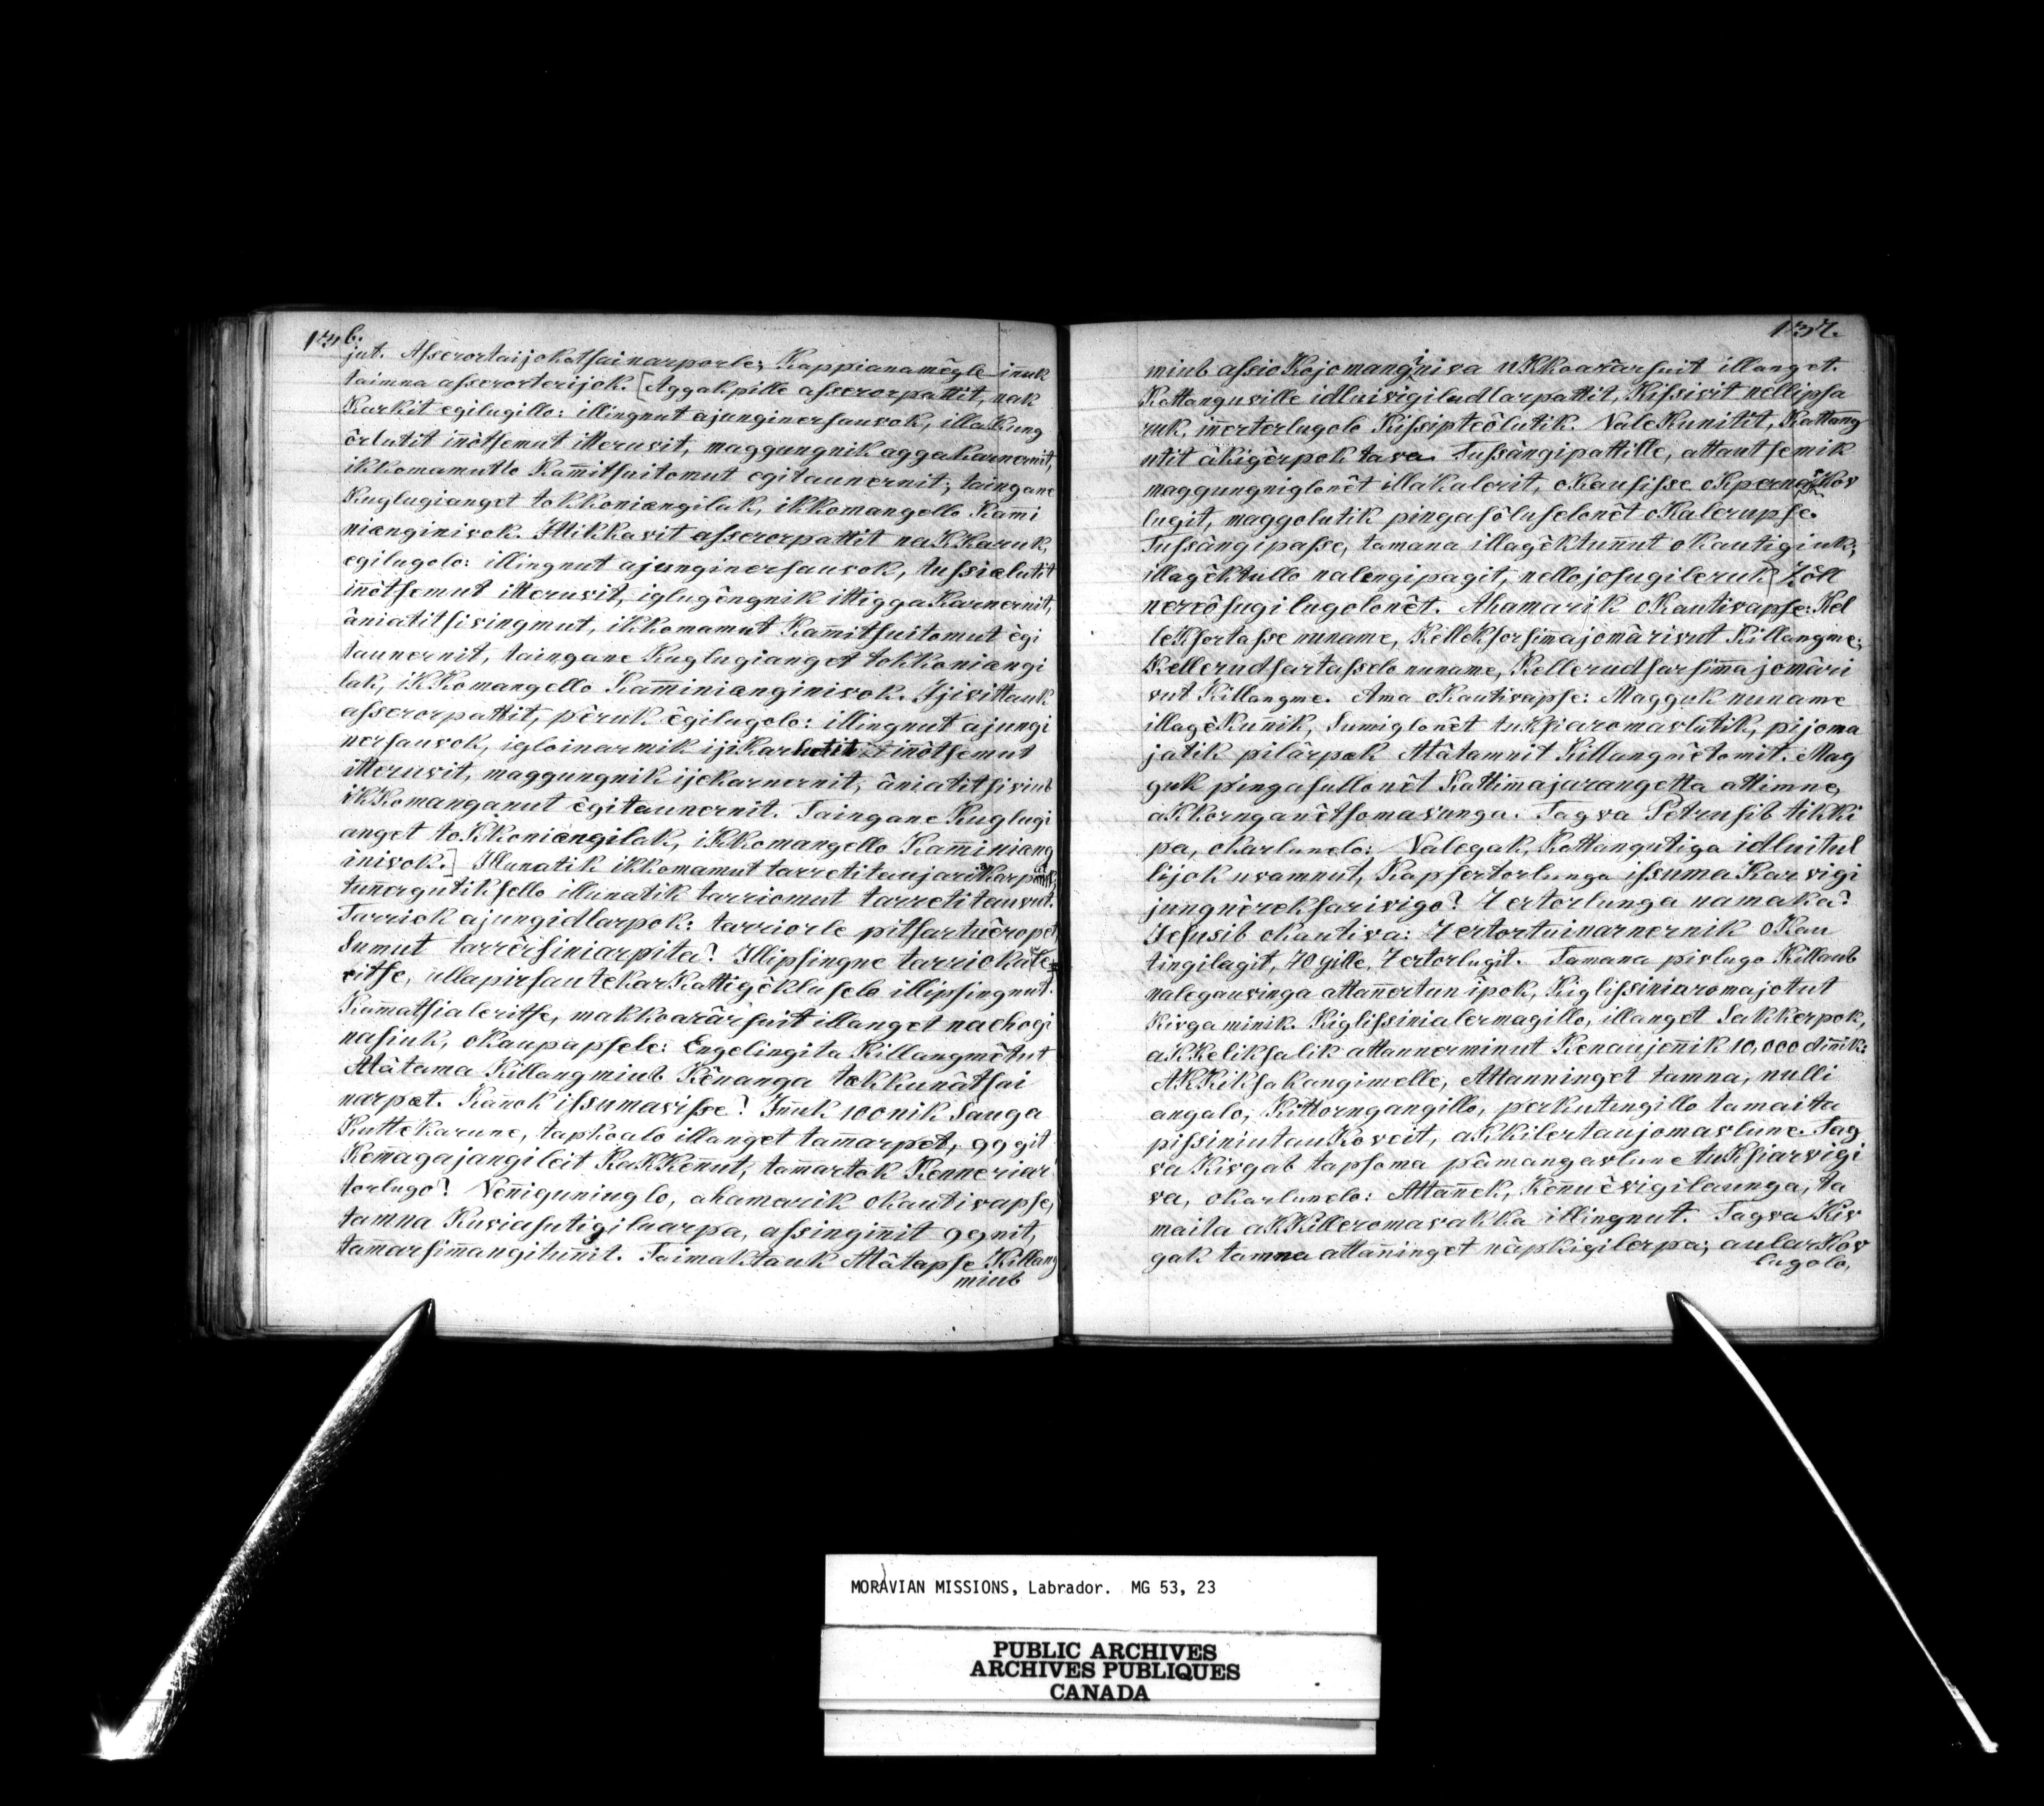 136.
jut. Asserortaijokatsainarporle; Kappianamêgle iñuk
taimna asserorterijok. [Aggakpille asserorpattit, nak
Karkit egilugillo: illingnut ajunginersauvok, illakung
ôrlutit iñôtsemut itteruvit, maggungnik aggakarnernit,
ikkomamutlo Kam̄itsuitomut egitaunernit; taingane
Kuglugianget tokkoniangilak, ikkomangello Kam̄i
nianginivok. Ittikkavit asserorpattit naKKaruk,
egilugolo: illingnut ajunginersauvok, tussialutit
iñôtsemut itteruvit, iglugêngnik ittiggaKarnernit,
âniatitsivingmut, ikkomamut Kam̄itsuitomut êgi
taunernit, taingane Kuglugianget tokkoniangi
lak, iKKomangello Kam̄inianginivok. Ijivittauk
asserorpattit, pêruk êgilugolo: illingnut ajungi
nersauvok, igloinarmik ijiKarlutit inôtsemut
itteruvit, maggungnik ijekarnernit, âniatitsiviub
ikKomanganut êgitaunernit. Taingane Kuglugi
anget toKkoniangilak, iKkomangello Kam̄iniang
inivok.] Illunatik ikkomamut tarretitaujariaKarput,
tun̄ergutiksello illunatik tarriomut tarretitauvut.
Tarriok ajungidlarpok: tarriorle pitsartuêropet,
Sumut tarrêrsiniarpita? Illipsingne tarriokale
ritse, ullapirsautekarKattigêkluselo illipsingnut.
Kam̄atsialeritse, makkoarârsuit illanget nachogi
nasiuk, okaupapsele: Engelingita Killangmêtut
Atâtama Killangmiub Kênanga takkunâtsai
narpat. Kan̄ok issumavisse? Iñuk 100nik Sauga
Kuttekarune, tapkoalo illanget tam̄arpet, 99git
Kem̄agajangileit KaKKen̄ut, tam̄artok Kenneriar
torlugo? Nen̄iguniuglo, ahamarik okautivapse,
tamna Kuviasutigiluarpa, assingin̄it 99nit,
tam̄arsim̄angitun̄it. Taimaktauk Atâtapse Killang
miub
137.
miub aseioKojomanginiva uKkoarârsuit illanget.
Kattanguville idluivigiludlarpattit, Kissivit nellipsa
ruk, inerterlugolo Kissipteôlutik. NaleKunitit, Kattang
utit âkigêrpok tava. Tussângipattille, attautsemik
maggungniglonêt illakalerit, oKausisse oKperna
lugit, maggolutik pingasôluselonêt oKalerupse.
Tussângipasse, tamana illagêktun̄ut okautigiuk;
illagêktullo nalengipagit, nellojosugileruk Zöll
nereôsugilugolonêt. Ahamarik oKautivapse: Kel
leKsortasse nuname, Kelleksorsim̄ajomârivut Killangme;
Kellerudsartasselo nuname, Kellerudsarsim̄ajomâri
vut Killangme. Ama oKautivapse: Magguk nuname
illagêKun̄ik, Sumiglonêt tukSiaromavlutik, pijoma
jatik pilârpek Atâtamnit Killangnêtomit. Mag
guk pingasullonêt Kattim̄ajarangetta attimne,
aKkornganêtsomavunga. Tagva Petrusib tikki
pa, okarlunelo: Nalegak, Kattangutiga idluitul
lijok uvamnut, Kapsertorlunga issumaKarvigi
jungnêreksarivigo? 7ertorlunga namaka?
Jesusib okautiva: 7ertortuinarnernik oKau
tingilagit, 70gille, 7ertorlugit. Tamana pivlugo Killaub
nalegauvinga attan̄ertun ipok, Kiglissiniaromajotut
Kivgaminik. Kiglissinialermagillo, illanget Sakkerpok,
aKKeliksalik attannerminut Kenaujen̄ik 10,000din̄ik:
AKKiksakangimelle, Attanninget tamna, nulli
angalo, Kittorngangillo, perkutingillo tamaita
pissiniutauKoveit, akkilertaujomavlune. Tag
va Kivgab tapsoma pâmangavlune tuKsiarvigi
va, okarlunelo: Attan̄ek, Ken̄uêvigilaunga, ta
maita aKKilleromavakka illingnut. Tagva Kiv
gak tamna attan̄inget nâpkigilerpa; aularKov
lugolo,
MORAVIAN MISSIONS, Labrador. MG 53, 23
PUBLIC ARCHIVES
ARCHIVES PUBLIQUES
CANADA